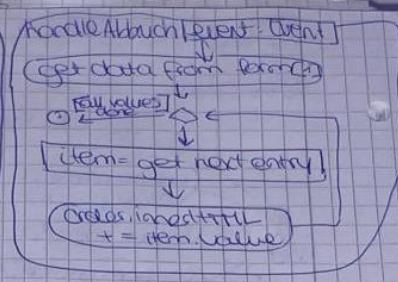 handleAbbuch(event: Event)
get data from form(1)
[all values]
done
item = get next entry
orders.innerHTML
+= item.value